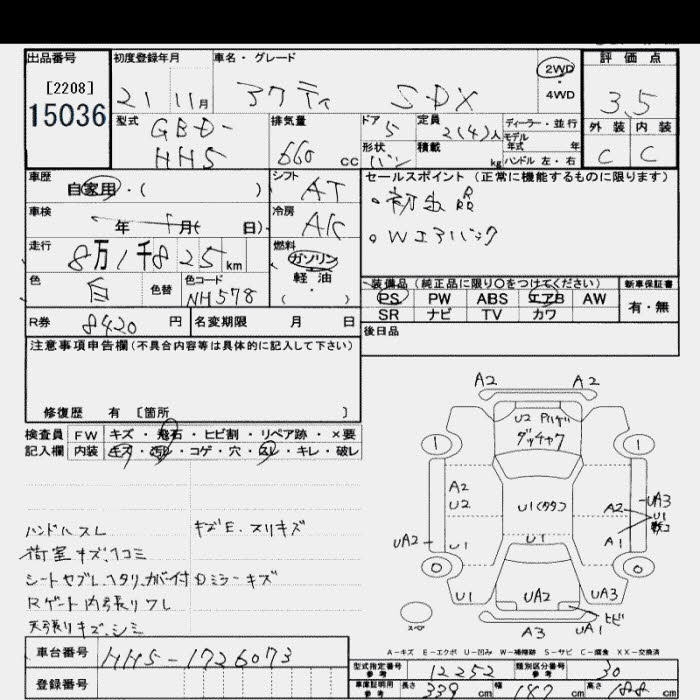 出品番号
[2208]
15036
初度登録年月
21 11月
車名・グレード
アクティ SDX
2WD
4WD
評価点
3.5
外装 内装
C C
型式
GBD-
HH5
排気量
660 cc
ドア
5
定員
2(4)人
形状
バン
積載
kg
ディーラー・並行
モデル
年式 年
ハンドル 左・右
車歴
自家用・( )
シフト
AT
車検
年 月( 日)
冷房
AC
走行
8万1千825 km
燃料
ガソリン
軽油
・( )
色
白
色替
色コード
NH578
R券
8420 円
名変期限 月 日
セールスポイント (正常に機能するものに限ります)
・初出品
・Wエアバック
装備品 (純正品に限り○をつけてください)
PS PW ABS エアB AW
SR ナビ TV カワ
新車保証書
有・無
後日品
注意事項申告欄(不具合内容等は具体的に記入して下さい)
修復歴 有 [箇所 ]
検査員 FW キズ・飛石・ヒビ割・リペア跡・×要
記入欄 内装 キズ・汚レ・コゲ・穴・スレ・キレ・破レ
ハンドルスレ
キズE.スリキズ
荷室キズ.凹コミ
シートセブレ.ヘタリ.カバー付
Dミラーキズ
Rゲート内張りワレ
天張りキズ.シミ
A2 A2
U2
ダッチャク
1 1
A2
U2
U1(クタクタ)
A2
UA3
U1
UA2
U1
U1
A1
0 0
U1
UA2
UA3
ヒビ
UA1
スペア
A3
A-キズ E-エクボ U-凹み W-補修跡 S-サビ C-腐食 XX-交換済
車台番号
HH5-1726073
登録番号
型式指定番号
参考
12252
類別区分番号
参考
30
車庫証明用
参考
長さ
339 cm
幅
187 cm
高さ
188 cm